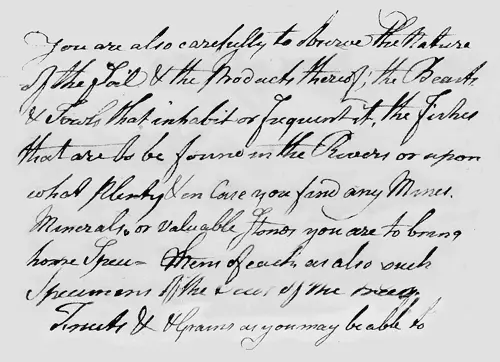 You are also carefully to observe the Nature
of the Soil & the Products thereof; the Beasts
& Fowls that inhabit or frequent it, the Fishes
that are to be found in the Rivers or upon
what Plenty & in Case you find any Mines,
Minerals, or valuable Stones you are to bring
home Speci- of each, as also such
Specimens of the of the
Fruits & Grains as you may be able to